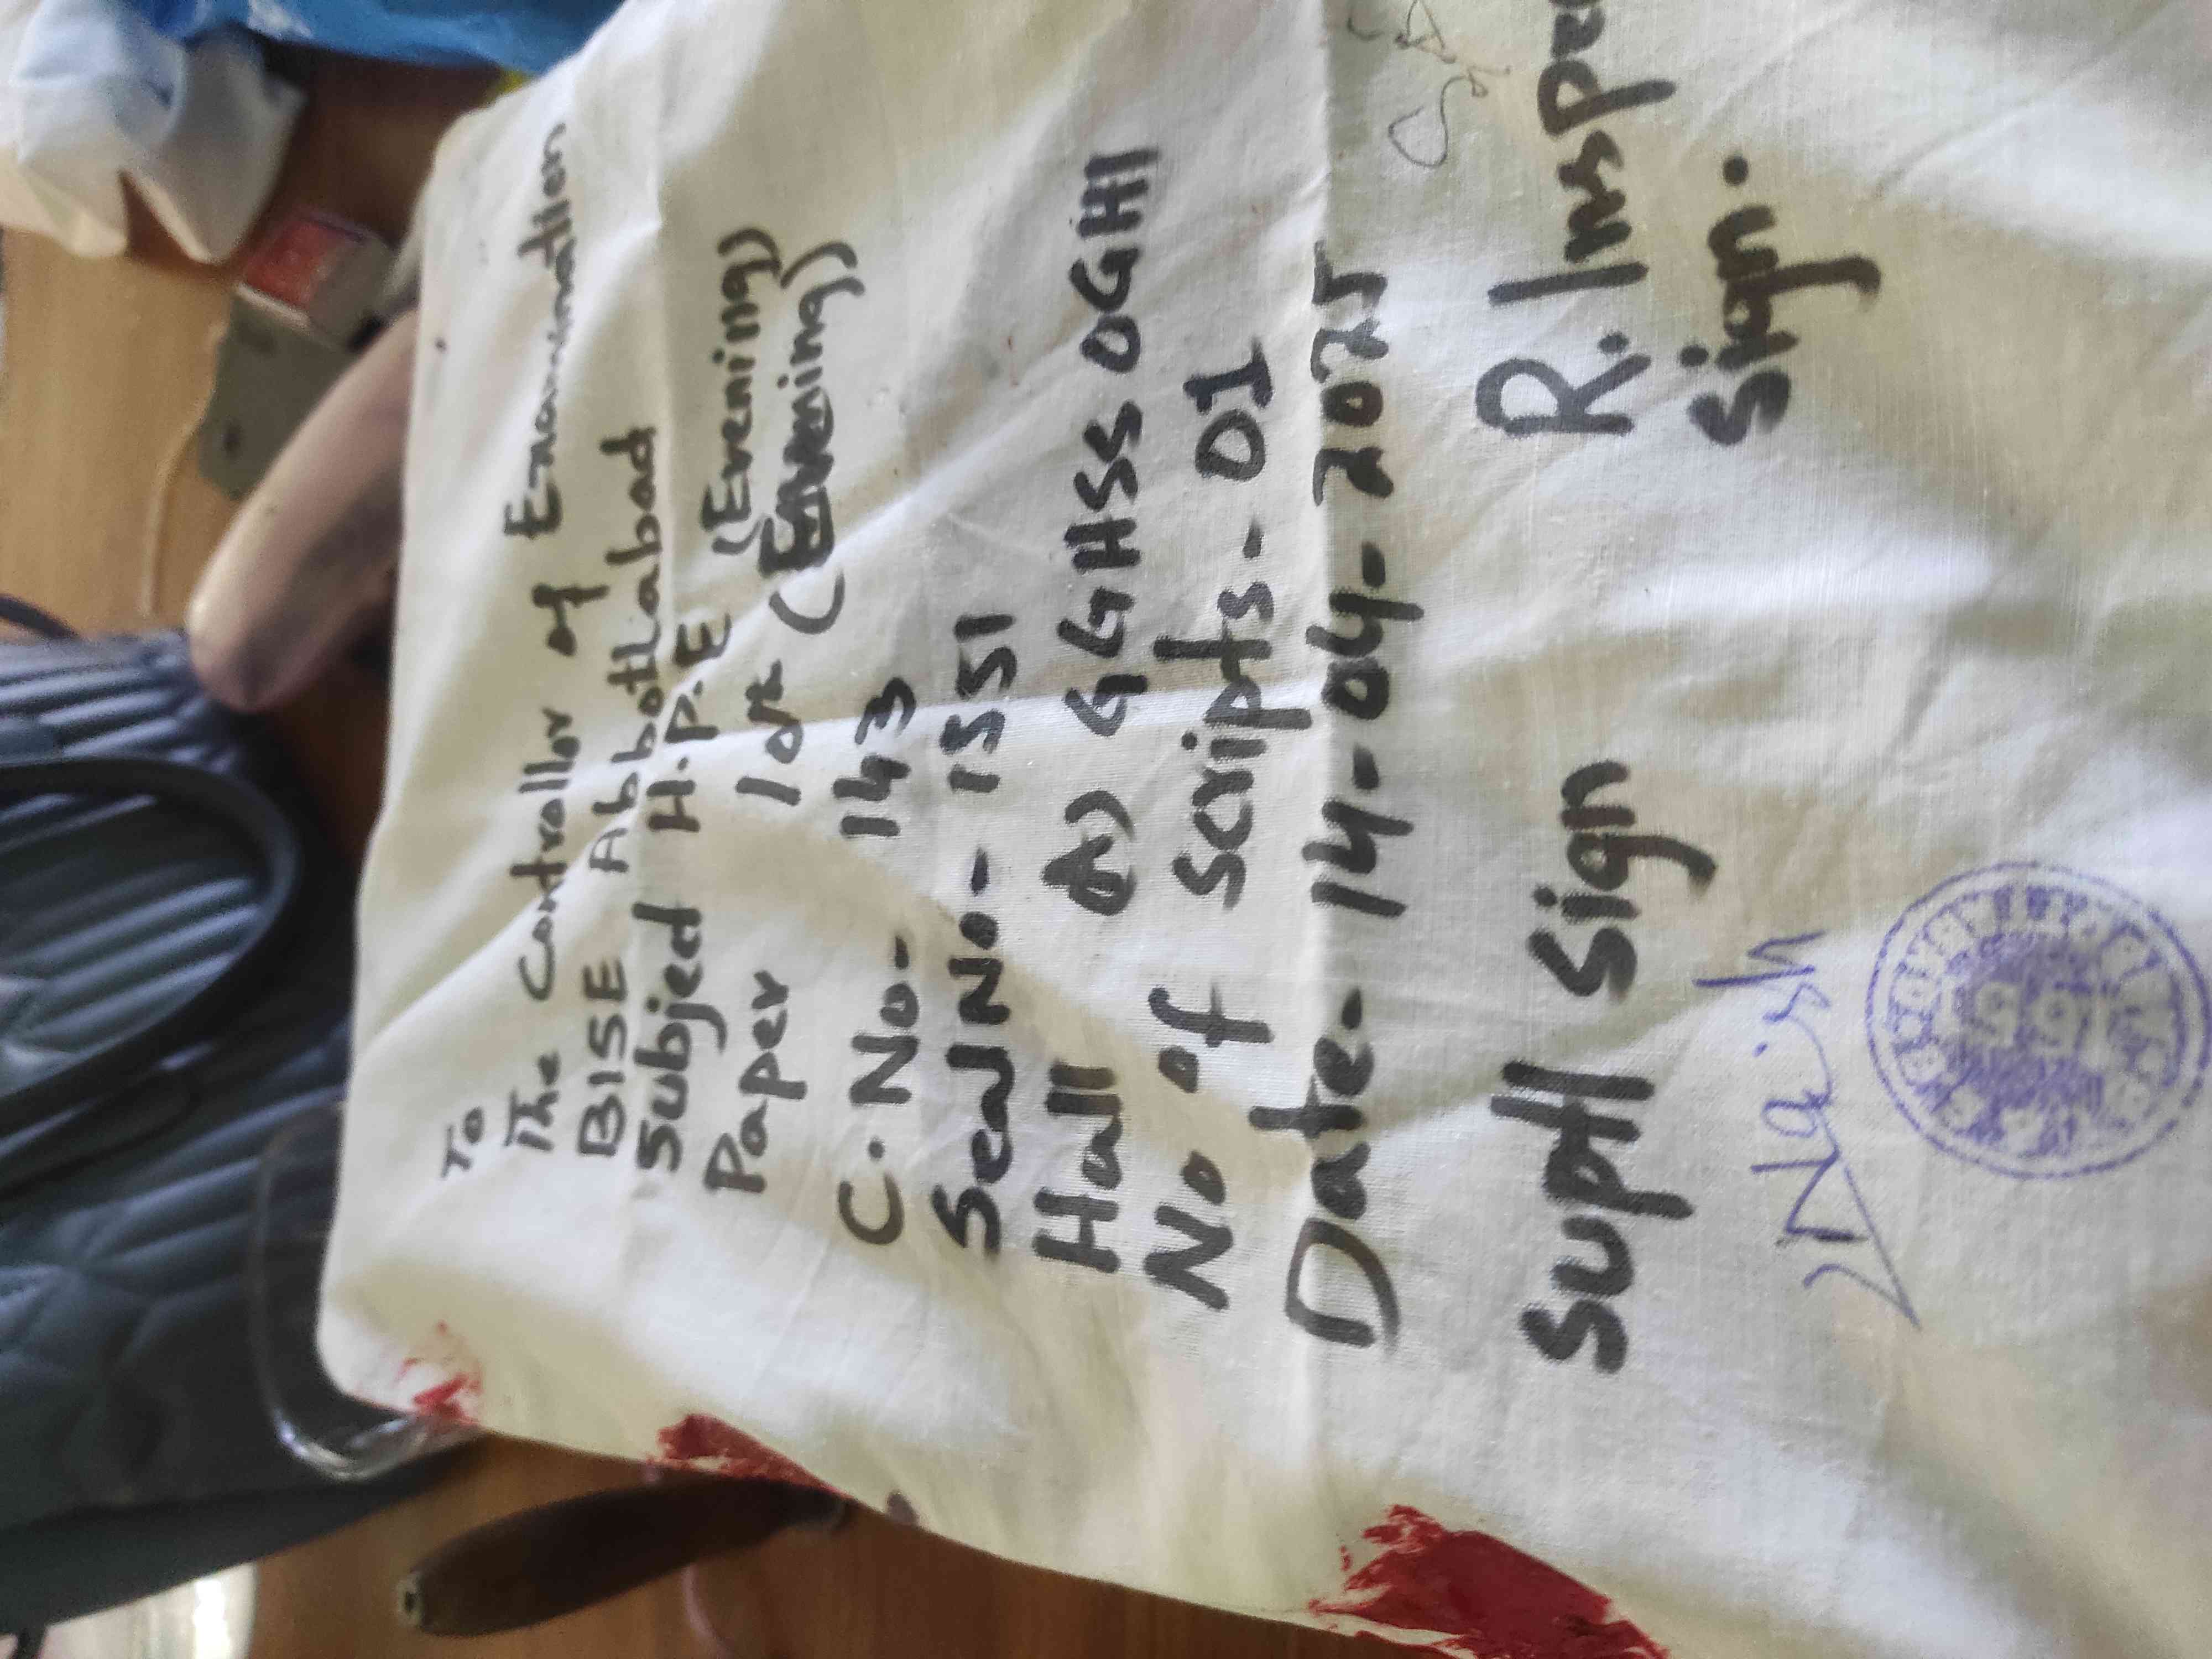 To
The Controller of Examination
BISE Abbottabad
Subject H.P.E (Evening)
Paper (Evening)
C.No- 143
Seal No- 1551
Hall A) GGHSS OGHI
No of Scripts- 01
Date- 14-04-2025
Suptt Sign R. Inspe
Sign.